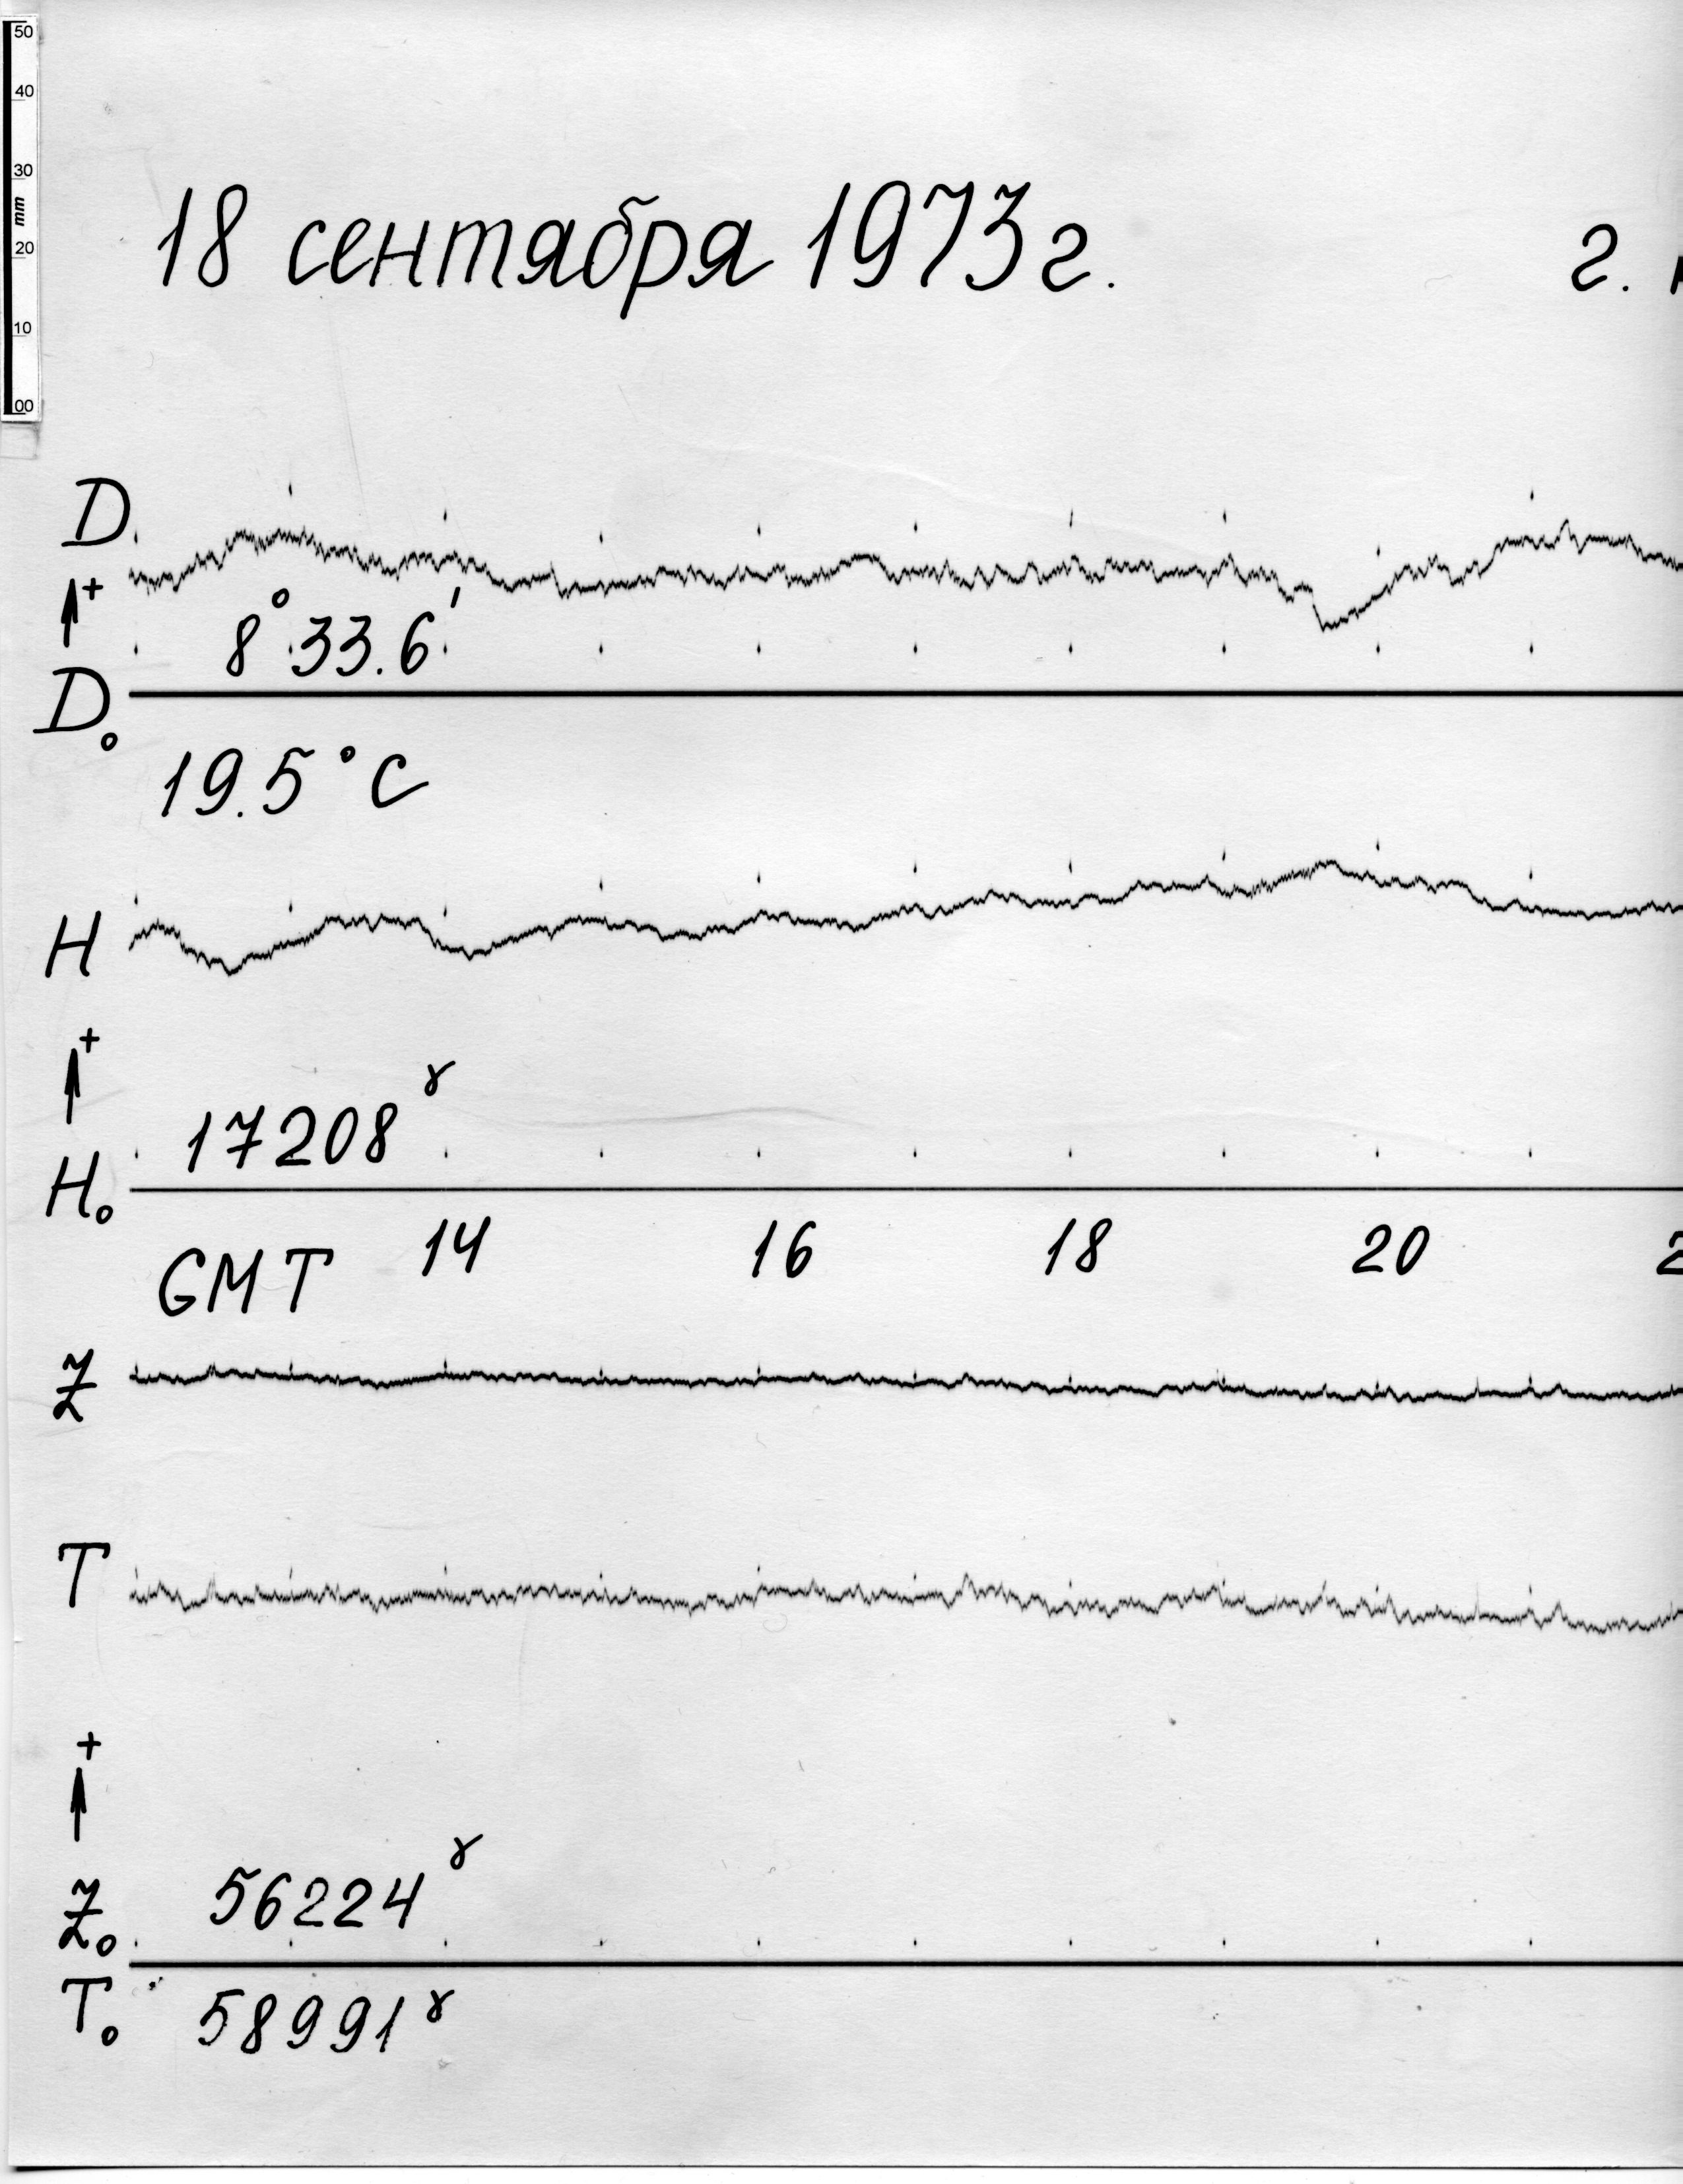 50
40
30
mm
20
10
00
18 сентября 1973 г.
г.
D
+
8° 33.6'
D₀
19.5°C
H
+
17208 γ
H₀
14 16 18 20
GMT
Z
T
+
56224 γ
Z₀
T₀ 58991 γ